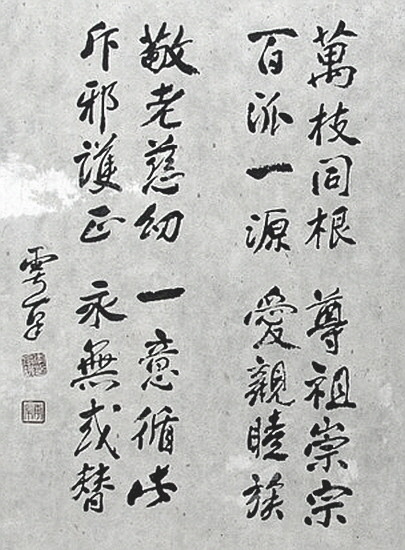 萬枝同根 尊祖崇宗
百派一源 愛親睦族
敬老慈幼 一意循此
斥邪護正 永無或替